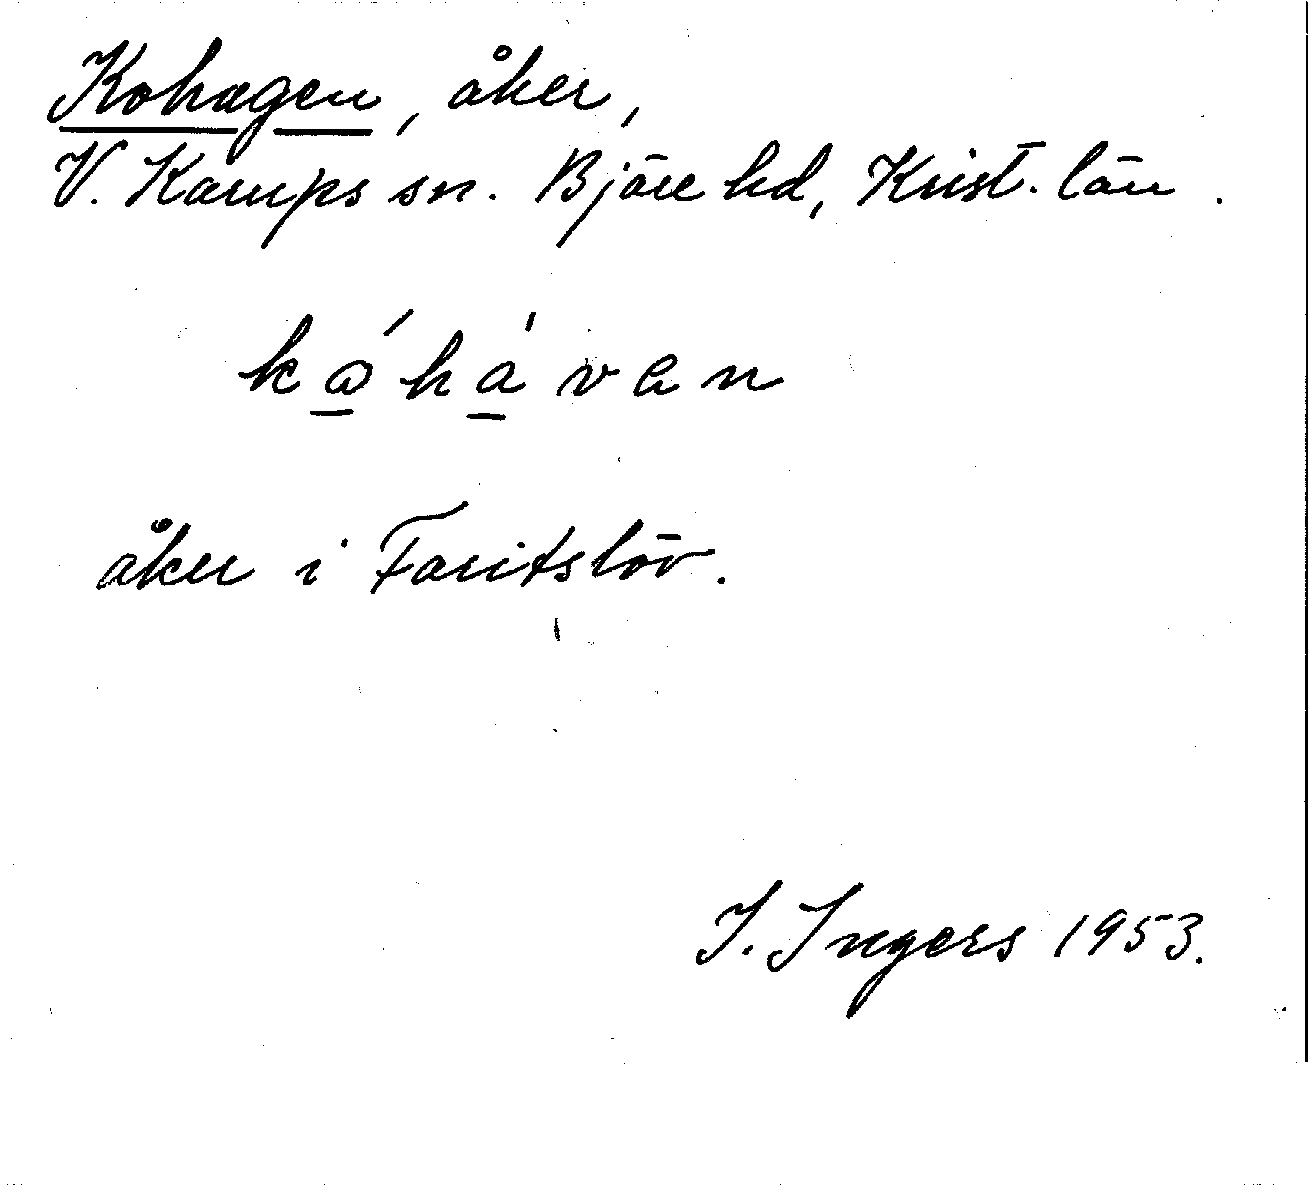 Kohagen, åker,
V. Karups sn. Bjäre hd, Krist. län.
kǻhávan
åker i Faritslöv.
I. Ingers 1953.